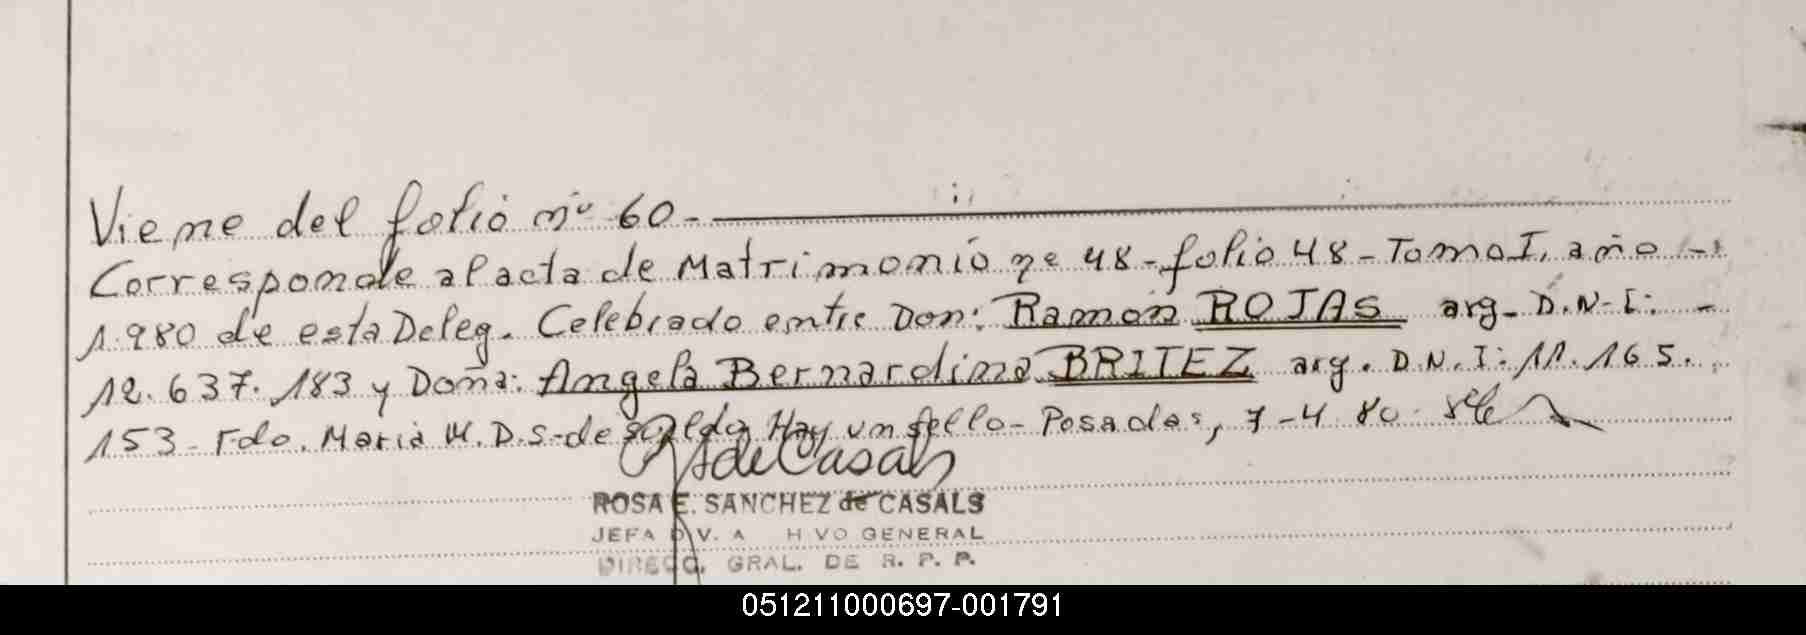 Viene del folio nº 60.-
Corresponde al acta de Matrimonio nº 48-folio 48-Tomo I, año -
1.980 de esta Deleg. Celebrado entre Don: Ramón ROJAS arg. D.N.I: -
12.637.183 y Doña: Angela Bernardina BRITEZ arg. D.N.I: 11.165.
153-Fdo. Maria M.D.S-de Hay un sello-Posadas, 7-4 80.
RSdeCasals
ROSA E. SANCHEZ de CASALS
JEFA DIV. A HIVO GENERAL
DIRECC. GRAL. DE R. P. P.
051211000697-001791